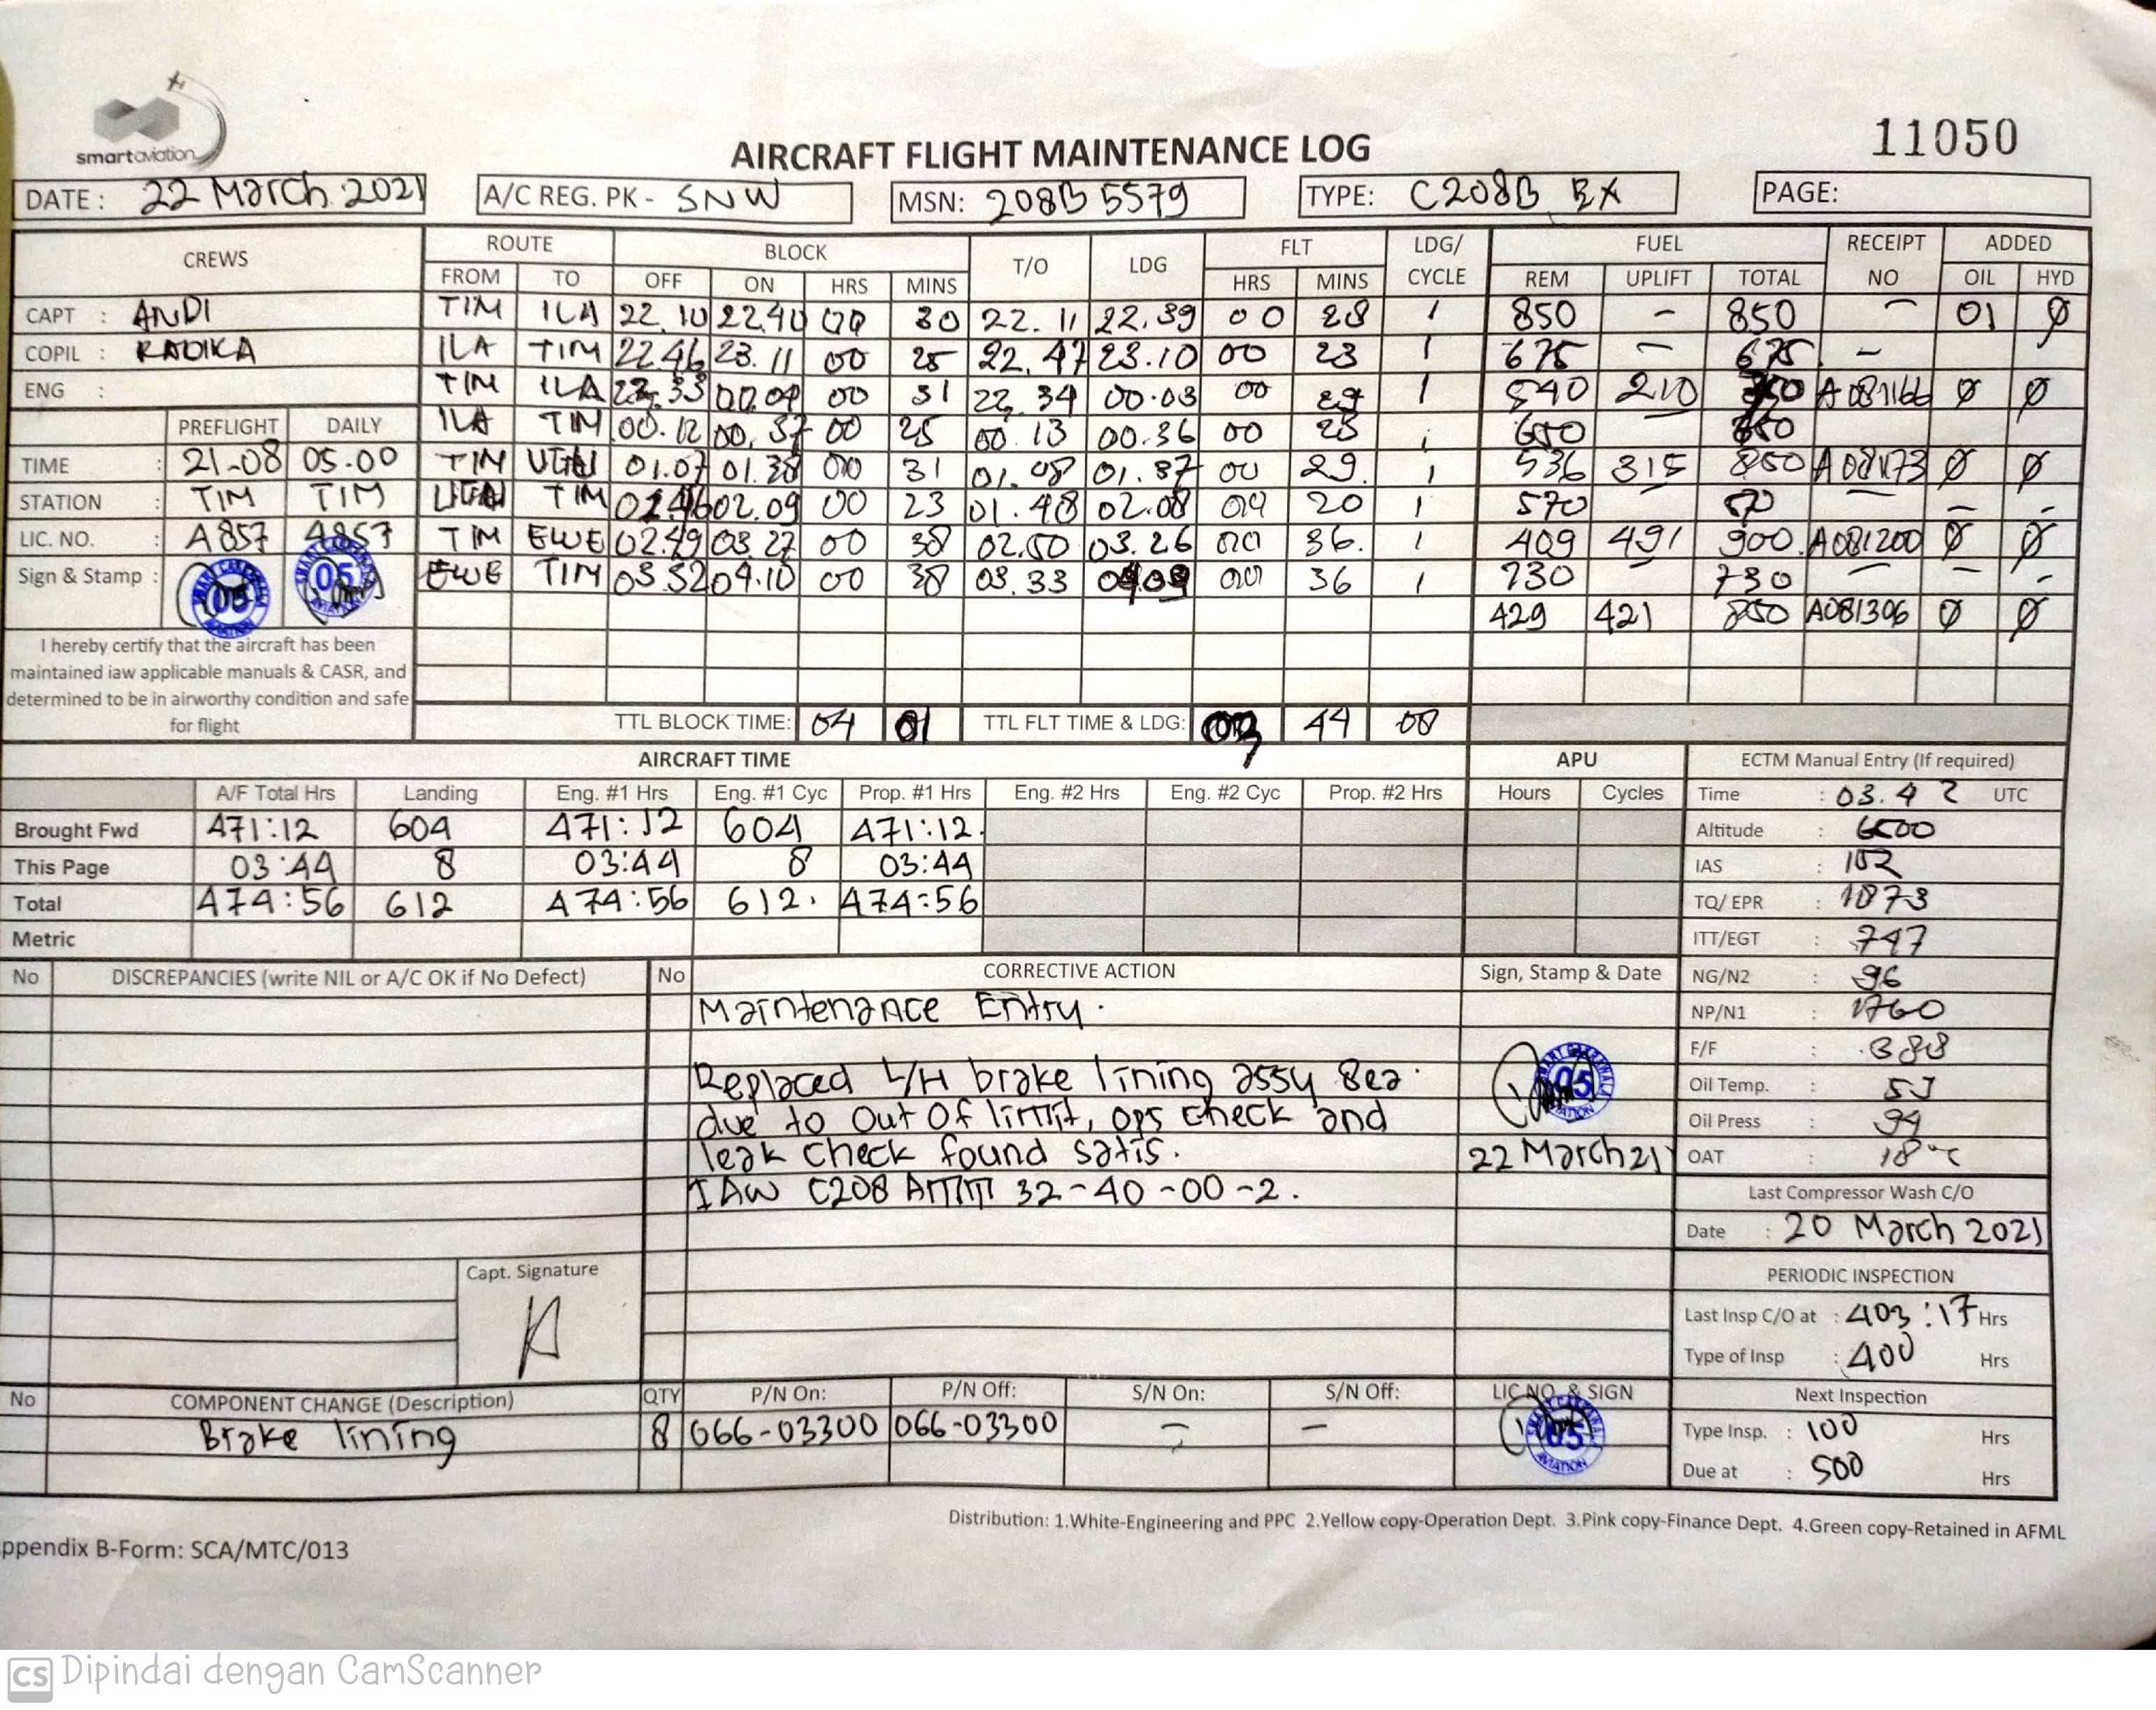 smartaviation
AIRCRAFT FLIGHT MAINTENANCE LOG
11050
DATE : 22 March 2021 A/C REG. PK - SNW MSN: 208B 5579 TYPE: C208B EX PAGE:
CREWS ROUTE BLOCK T/O LDG FLT LDG/ FUEL RECEIPT ADDED
FROM TO OFF ON HRS MINS HRS MINS CYCLE REM UPLIFT TOTAL NO OIL HYD
CAPT : ANDI TIM ILA 22.10 22.40 00 30 22.11 22.39 00 28 1 850 - 850 - 01 Ø
COPIL : RADIKA ILA TIM 22.46 23.11 00 25 22.47 23.10 00 23 1 675 - 675 -
ENG : TIM ILA 00.04 00 31 00.03 00 29 1 540 210 A081166 Ø Ø
PREFLIGHT DAILY ILA TIM 00.12 00.37 00 25 00.13 00.36 00 23 1 650
TIME : 21-08 05.00 TIM 01.07 01.38 00 31 01.08 01.37 00 29. 1 536 315 850 Ø Ø
STATION : TIM TIM TIM 02.09 00 23 01.48 02.08 00 20 1 570 - -
LIC. NO. : A857 A857 TIM EWE 02.49 03.27 00 38 02.50 03.26 00 36. 1 409 491 900. A081200 Ø Ø
Sign & Stamp : EWE TIM 03.32 04.10 00 38 03.33 04.09 00 36 1 730 730 - -
05 05
429 421 850 A081306 Ø Ø
I hereby certify that the aircraft has been
maintained iaw applicable manuals & CASR, and
determined to be in airworthy condition and safe
for flight
TTL BLOCK TIME: 04 01 TTL FLT TIME & LDG: 03 44 08
AIRCRAFT TIME APU ECTM Manual Entry (If required)
A/F Total Hrs Landing Eng. #1 Hrs Eng. #1 Cyc Prop. #1 Hrs Eng. #2 Hrs Eng. #2 Cyc Prop. #2 Hrs Hours Cycles Time : 03.42 UTC
Brought Fwd 471:12 604 471:12 604 471:12. Altitude : 6500
This Page 03:44 8 03:44 8 03:44 IAS : 152
Total 474:56 612 474:56 612. 474:56 TQ/ EPR : 1873
Metric ITT/EGT : 747
No DISCREPANCIES (write NIL or A/C OK if No Defect) No CORRECTIVE ACTION Sign, Stamp & Date NG/N2 : 96
Maintenance Entry. NP/N1 : 1760
F/F : 388
Replaced L/H brake lining assy 8ea. 05 Oil Temp. :
due to out of limit, ops check and Oil Press : 94
leak check found satis. 22 March 21 OAT : 18°C
IAW C208 AMM 32-40-00-2. Last Compressor Wash C/O
Date : 20 March 2021
Capt. Signature
PERIODIC INSPECTION
Last Insp C/O at : 403:17 Hrs
Type of Insp : 400 Hrs
No COMPONENT CHANGE (Description) QTY P/N On: P/N Off: S/N On: S/N Off: LIC NO. & SIGN Next Inspection
Brake lining 8 066-03300 066-03300 - - 05 Type Insp. : 100 Hrs
Due at : 500 Hrs
Distribution: 1.White-Engineering and PPC 2.Yellow copy-Operation Dept. 3.Pink copy-Finance Dept. 4.Green copy-Retained in AFML
ppendix B-Form: SCA/MTC/013
CS Dipindai dengan CamScanner